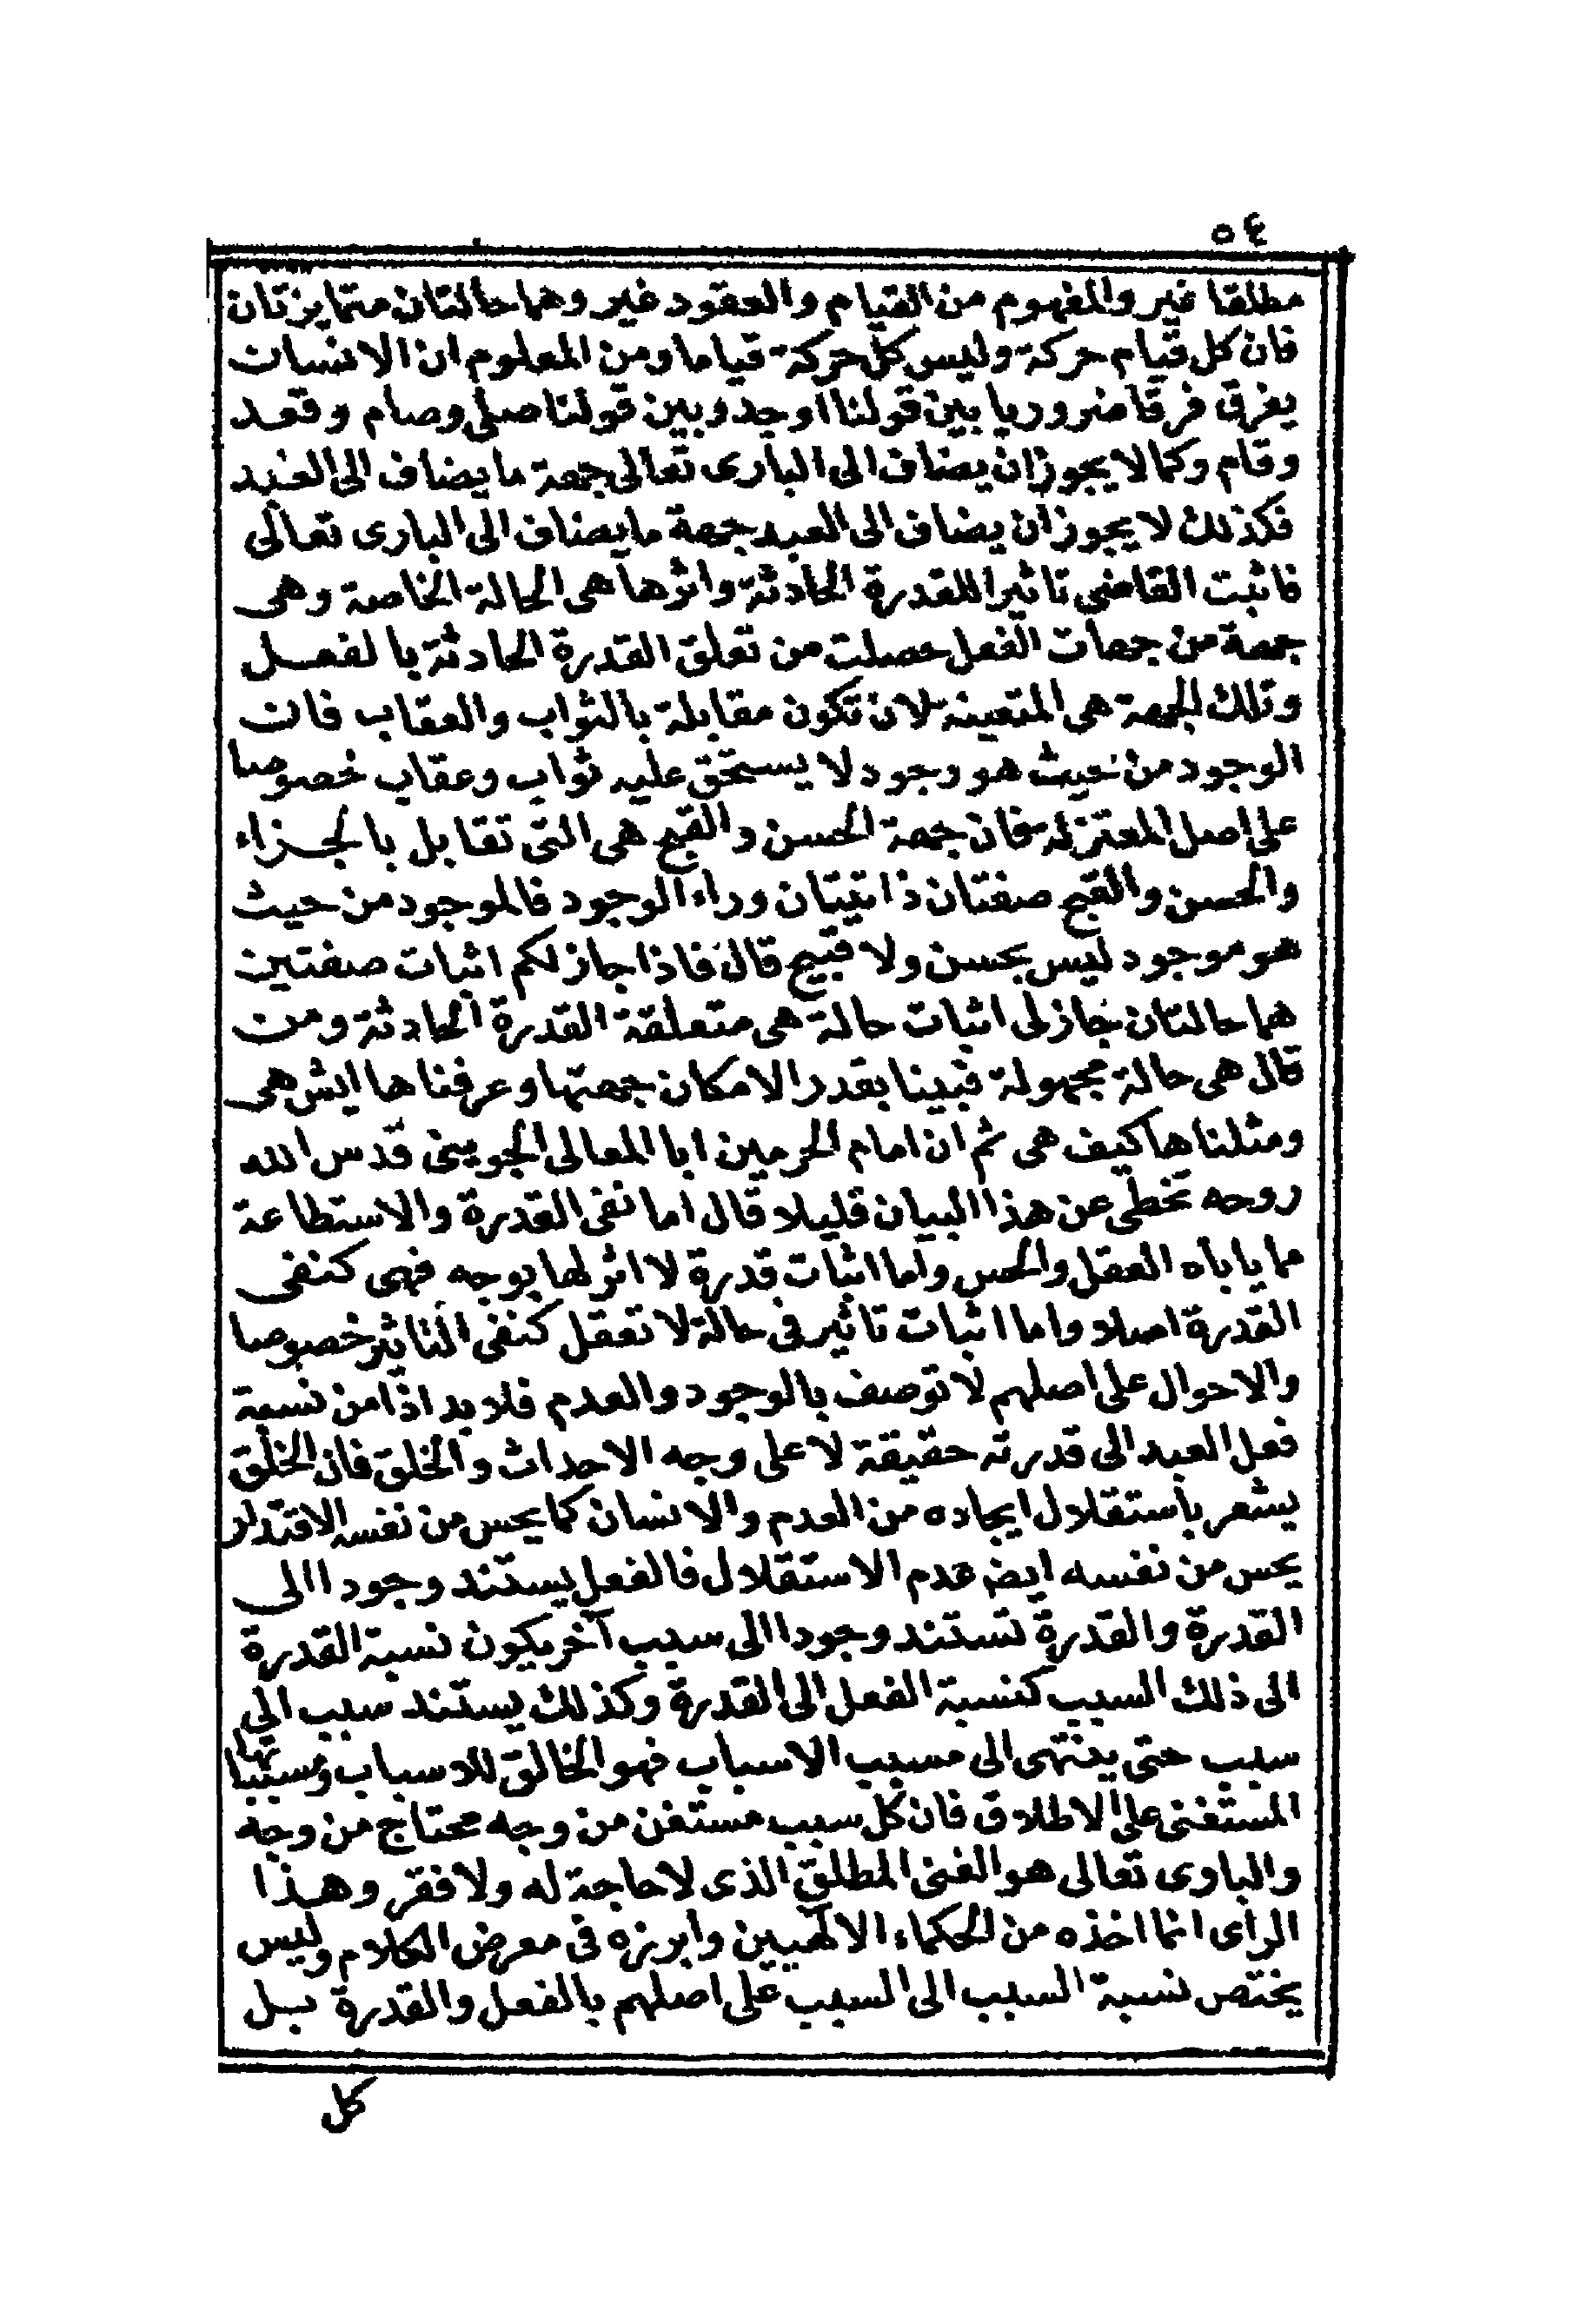 ٥٤
مطلقا غير والمفهوم من القيام والعقود غير وهما حالتان متمايزتان
فان كل قيام حركة وليس كل حركة قياما ومن المعلوم ان الانسان
يفرق فرقا ضروريا بين قولنا اوجد وبين قولنا صلى وصام وقعد
وقام وكما لا يجوز ان يضاف الى البارى تعالى جهة ما يضاف الى العبد
فكذلك لا يجوز ان يضاف الى العبد جهة ما يضاف الى البارى تعالى
فاثبت القاضى تاثيرا للقدرة الحادثة واثرها هى الحالة الخاصة وهى
جهة من جهات الفعل حصلت من تعلق القدرة الحادثة بالفعل
وتلك الجهة هى المتعينة لان تكون مقابلة بالثواب والعقاب فان
الوجود من حيث هو وجود لا يستحق عليه ثواب وعقاب خصوصا
على اصل المعتزلة فان جهة الحسن والقبح هى التى تقابل بالجزاء
والحسن والقبح صفتان ذاتيتان وراء الوجود فالموجود من حيث
هو موجود ليس بحسن ولا قبيح قال فاذا جاز لكم اثبات صفتين
هما حالتان جاز لى اثبات حالة هى متعلقة القدرة الحادثة ومن
قال هى حالة مجهولة فبينا بقدر الامكان جهتها وعرفناها ايش هى
ومثلناها كيف هى ثم ان امام الحرمين ابا المعالى الجوينى قدس الله
روحه تخطى عن هذا البيان قليلا قال اما نفى القدرة والاستطاعة
مما ياباه العقل والحس واما اثبات قدرة لا اثر لها بوجه فهى كنفى
القدرة اصلا واما اثبات تاثير فى حالة لا تعقل كنفى التاثير خصوصا
والاحوال على اصلهم لا توصف بالوجود والعدم فلا بد اذا من نسبة
فعل العبد الى قدرته حقيقة لا على وجه الاحداث والخلق فان الخلق
يشعر باستقلال ايجاده من العدم والانسان كما يحس من نفسه الاقتدار
يحس من نفسه ايض عدم الاستقلال فالفعل يستند وجودا الى
القدرة والقدرة تستند وجودا الى سبب آخر يكون نسبة القدرة
الى ذلك السبب كنسبة الفعل الى القدرة وكذلك يستند سبب الى
سبب حتى ينتهى الى مسبب الاسباب فهو الخالق للاسباب ومسبباتها
المستغنى على الاطلاق فان كل سبب مستغن من وجه محتاج من وجه
والبارى تعالى هو الغنى المطلق الذى لا حاجة له ولا فقر وهذا
الراى انما اخذه من الحكماء الالهيين وابرزه فى معرض الكلام وليس
يختص نسبة السبب الى السبب على اصلهم بالفعل والقدرة بل
كل